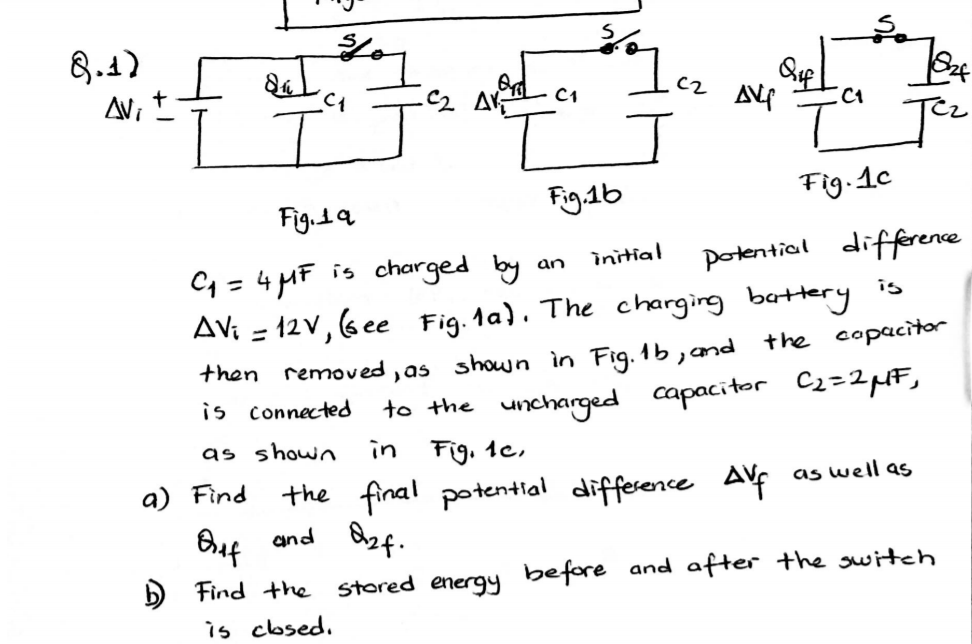 Q.1)
ΔVi + - Q1i C1 S C2
ΔVi Q1i C1 S C2
ΔVf Q1f C1 S Q2f C2
Fig.1a
Fig.1b
Fig.1c
C1 = 4 μF is charged by an initial potential difference
ΔVi = 12V, (see Fig. 1a). The charging battery is
then removed, as shown in Fig. 1b, and the capacitor
is connected to the uncharged capacitor C2=2μF,
as shown in Fig. 1c.
a) Find the final potential difference ΔVf as well as
Q1f and Q2f.
b) Find the stored energy before and after the switch
is closed.